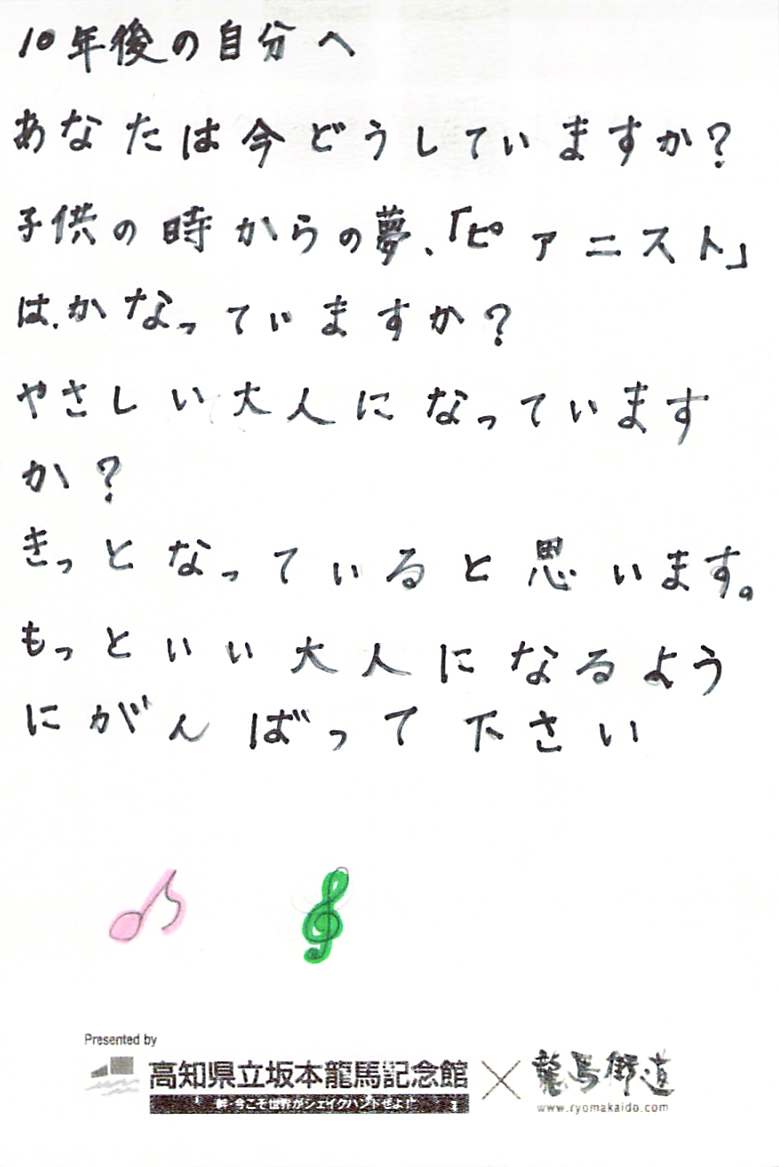 10年後の自分へ
あなたは今どうしていますか?
子供の時からの夢、「ピアニスト」
は、かなっていますか?
やさしい大人になっています
か?
きっとなっていると思います。
もっといい大人になるよう
にがんばって下さい
Presented by
高知県立坂本龍馬記念館×龍馬街道
絆・今こそ世界がシェイクハンドぜよ!
www.ryomakaido.com